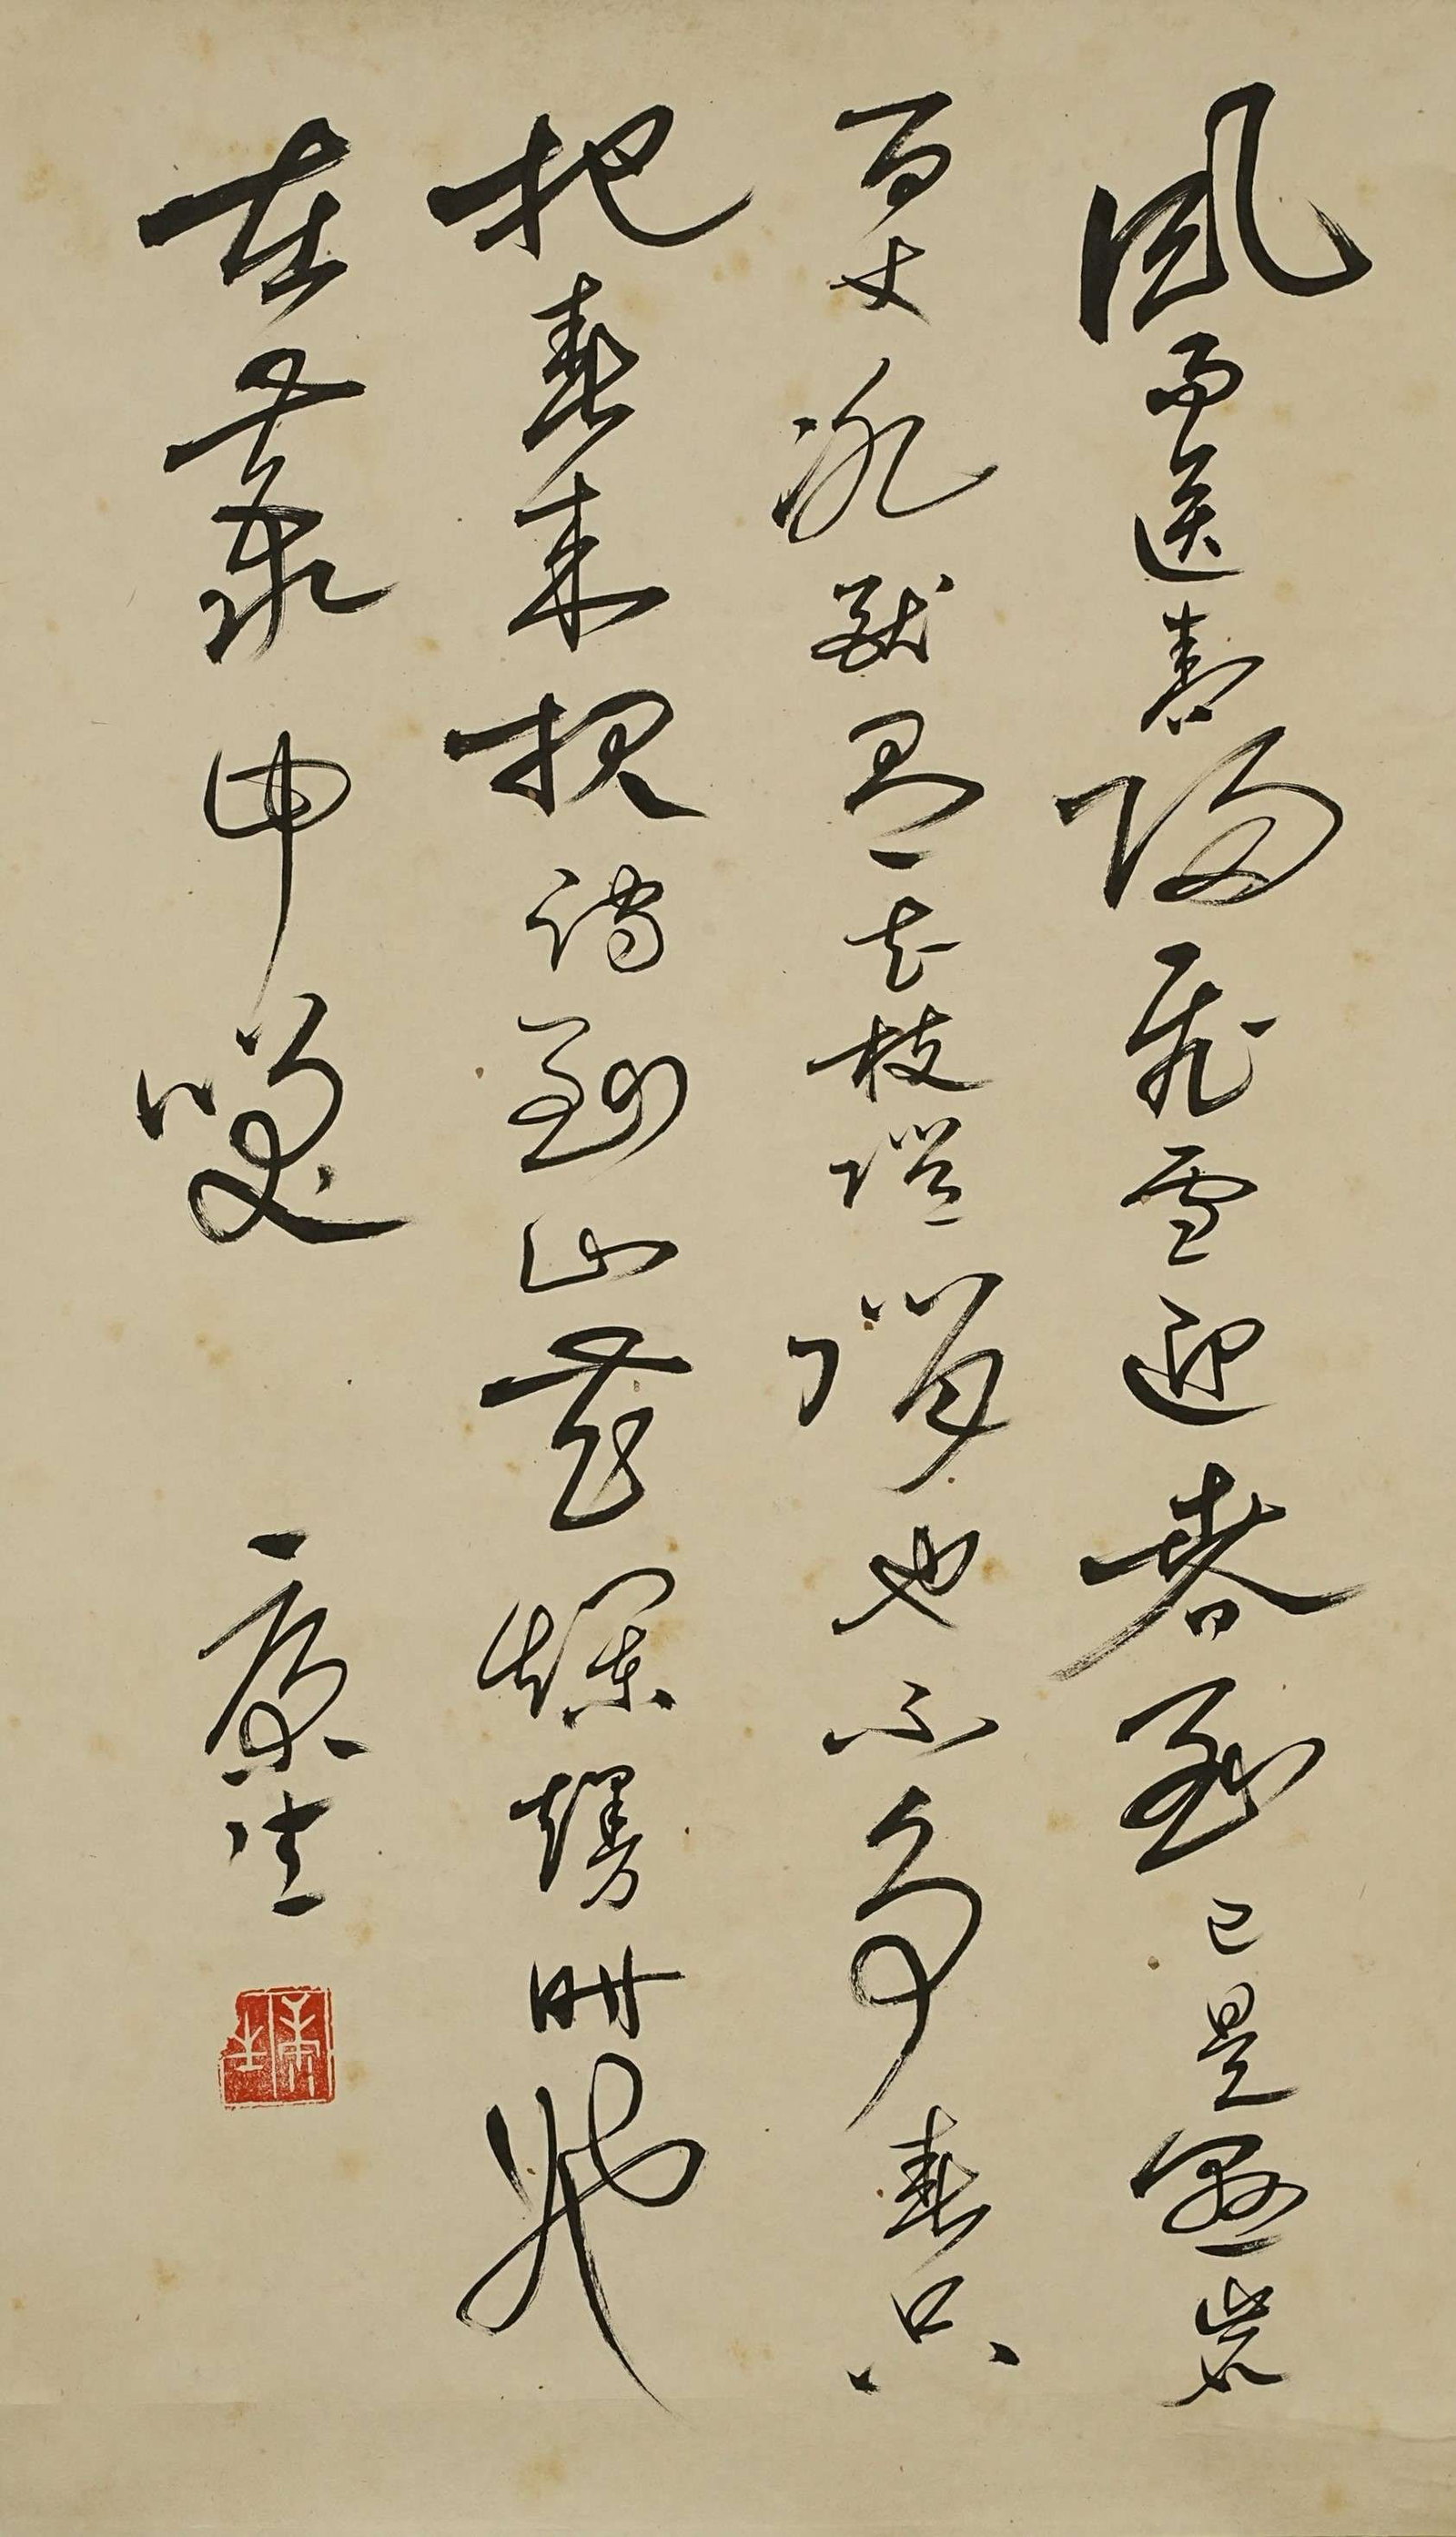 風雨送春歸飛雪迎春到已是懸崖
百丈冰猶有花枝俏俏也不爭春只
把春來報待到山花爛熳時她
在叢中笑
康生
康生